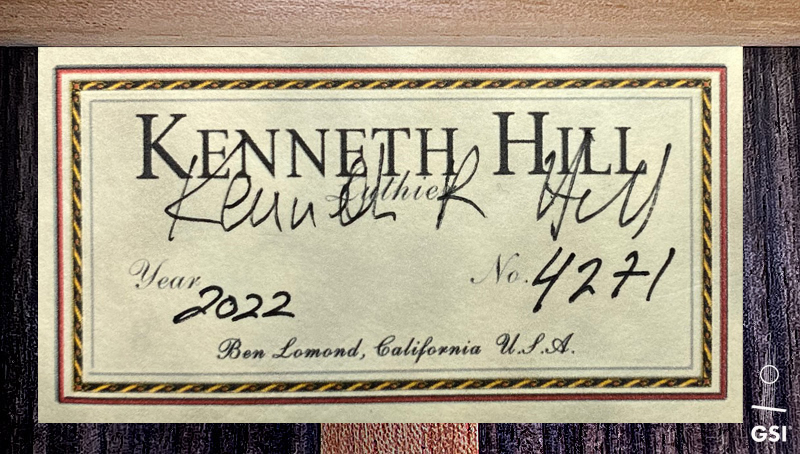 KENNETH HILL
Luthier
Kenneth R Hill
Year 2022
No. 4271
Ben Lomond, California U.S.A.
GSI